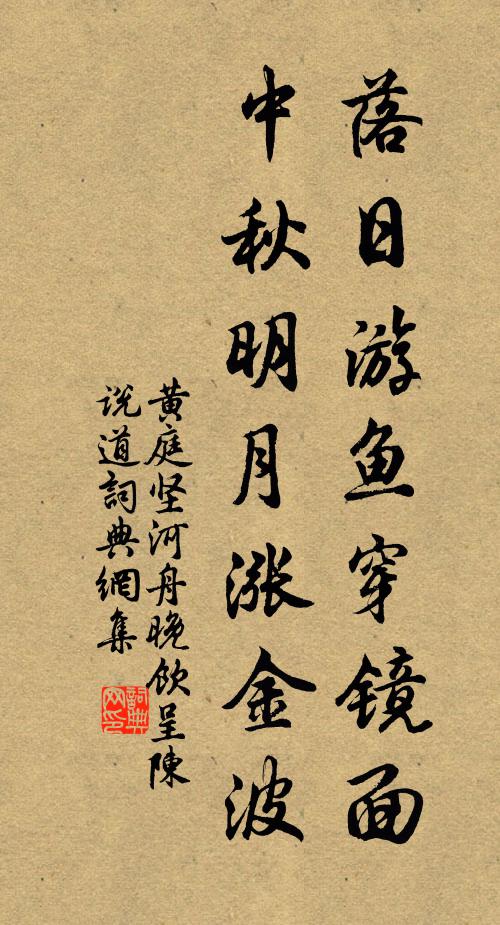 落日游鱼穿镜面
中秋明月涨金波
黄庭坚河舟晚饮呈陈
说道詞典網集
詞典网印